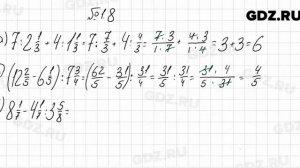 GDZ.RU
№18
7·2 1/3 + 4·1 1/3 = 7· 7/3 + 4· 4/3 = 7·3/1·7 + 4·3/1·4 = 3+3=6
(12 2/5 - 6 1/5) : 7 3/4 = (62/5 - 31/5) : 31/4 = 31/5 : 31/4 = 31·4/5·31 = 4/5
8 1/7 - 4 1/7 : 3 5/8 =
GDZ.RU